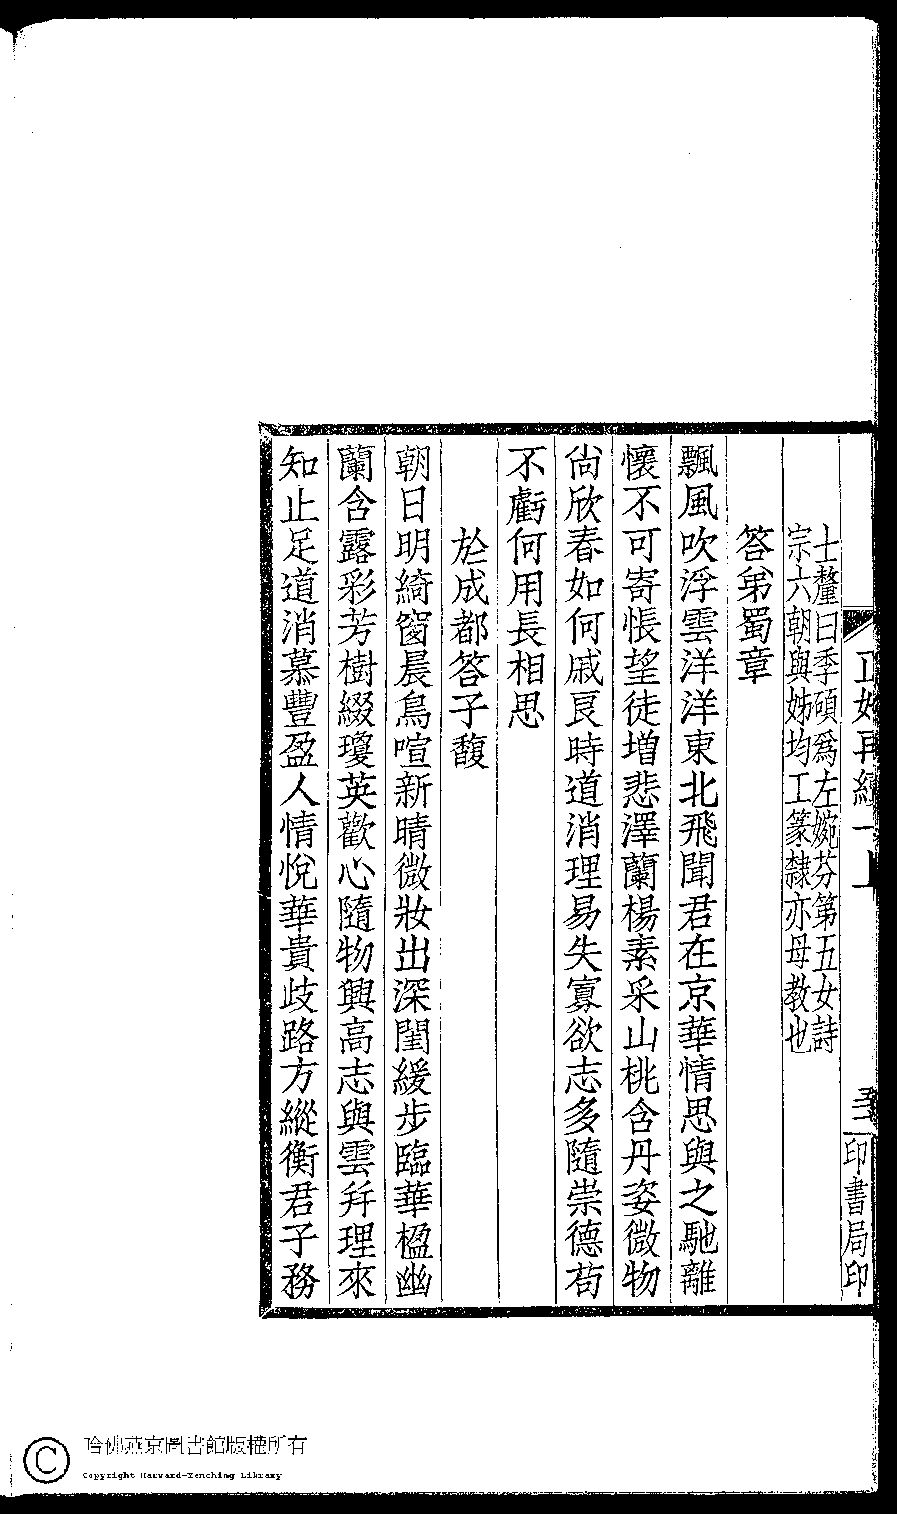 正始再續一上
五二
印書局印
士釐曰季碩爲左婉芬第五女詩
宗六朝與姊均工篆隸亦母教也
答弟蜀章
飄風吹浮雲洋洋東北飛聞君在京華情思與之馳離
懷不可寄悵望徒增悲澤蘭楊素采山桃含丹姿微物
尙欣春如何戚良時道消理易失寡欲志多隨崇德苟
不虧何用長相思
於成都答子馥
朝日明綺窗晨鳥喧新晴微妝出深閨緩步臨華楹幽
蘭含露彩芳樹綴瓊英歡心隨物興高志與雲幷理來
知止足道消慕豐盈人情悅華貴歧路方縱衡君子務
哈佛燕京圖書館版權所有
Copyright Harvard-Yenching Library